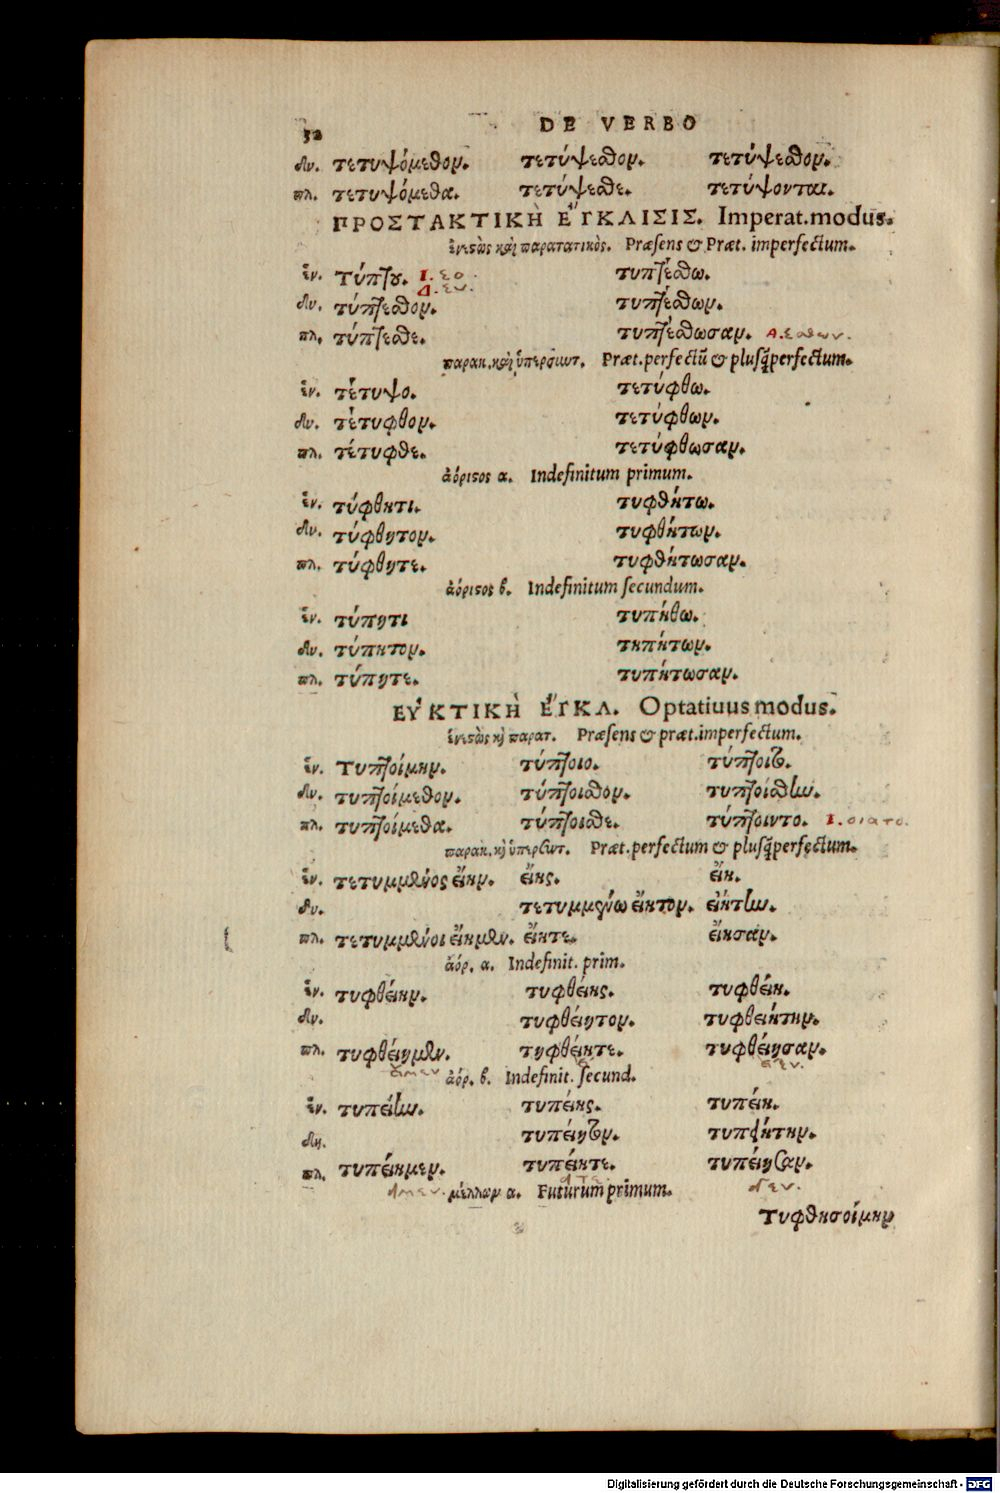 52 DE VERBO
δυ. τετυψόμεθον. τετύψεσθον. τετύψεσθον.
πλ. τετυψόμεθα. τετύψεσθε. τετύψονται.
ΠΡΟΣΤΑΚΤΙΚῊ ἜΓΚΛΙΣΙΣ. Imperat.modus.
ἐνεστὼς καὶ παρατατικὸς. Præsens & Præt. imperfectum.
ἑν. Τύπτου. Ι. εο τυπτέσθω.
Δ. ευ.
δυ. τύπτεσθον. τυπτέσθων.
πλ. τύπτεσθε. τυπτέσθωσαν. Α. εσθων.
παρακ. καὶ ὑπερσιωτ. Præt. perfectũ & plusq̃perfectum.
ἑν. τέτυψο. τετύφθω.
δυ. τέτυφθον. τετύφθων.
πλ. τέτυφθε. τετύφθωσαν.
ἀόριστος α. Indefinitum primum.
ἑν. τύφθητι. τυφθήτω.
δυ. τύφθητον. τυφθήτων.
πλ. τύφθητε. τυφθήτωσαν.
ἀόριστος β. Indefinitum secundum.
ἑν. τύπητι τυπήθω.
δυ. τύπητον. τηπήτων.
πλ. τύπητε. τυπήτωσαν.
ΕΥ̓ΚΤΙΚῊ ἜΓΚΛ. Optatiuus modus.
ἐνεστὼς κὶ παρατ. Præsens & præt.imperfectum.
ἑν. Τυπτοίμην. τύπτοιο. τύπτοιτο.
δυ. τυπτοίμεθον. τύπτοισθον. τυπτοίσθην.
πλ. τυπτοίμεθα. τύπτοισθε. τύπτοιντο. Ι. οιατο.
παρακ. κὶ ὑπερσωτ. Præt.perfectum & plusq̃perfectum.
ἑν. τετυμμένος εἴην. εἴης. εἴη.
δυ. τετυμμένω εἴητον. εἰήτην.
πλ. τετυμμένοι εἴημεν. εἴητε. εἴησαν.
ἀόρ. α. Indefinit. prim.
ἑν. τυφθείην. τυφθείης. τυφθείη.
δυ. τυφθείητον. τυφθειήτην.
πλ. τυφθείημεν. τηφθείητε. τυφθείησαν.
εῖμεν εῖεν.
ἀόρ. β. Indefinit. secund.
ἑν. τυπείην. τυπείης. τυπείη.
δυ. τυπείητον. τυπειήτην.
πλ. τυπείημεν. τυπείητε. τυπείησαν.
εῖμεν. μέλλων α. Futurum primum. εῖεν.
Τυφθησοίμην
Digitalisierung gefördert durch die Deutsche Forschungsgemeinschaft - DFG